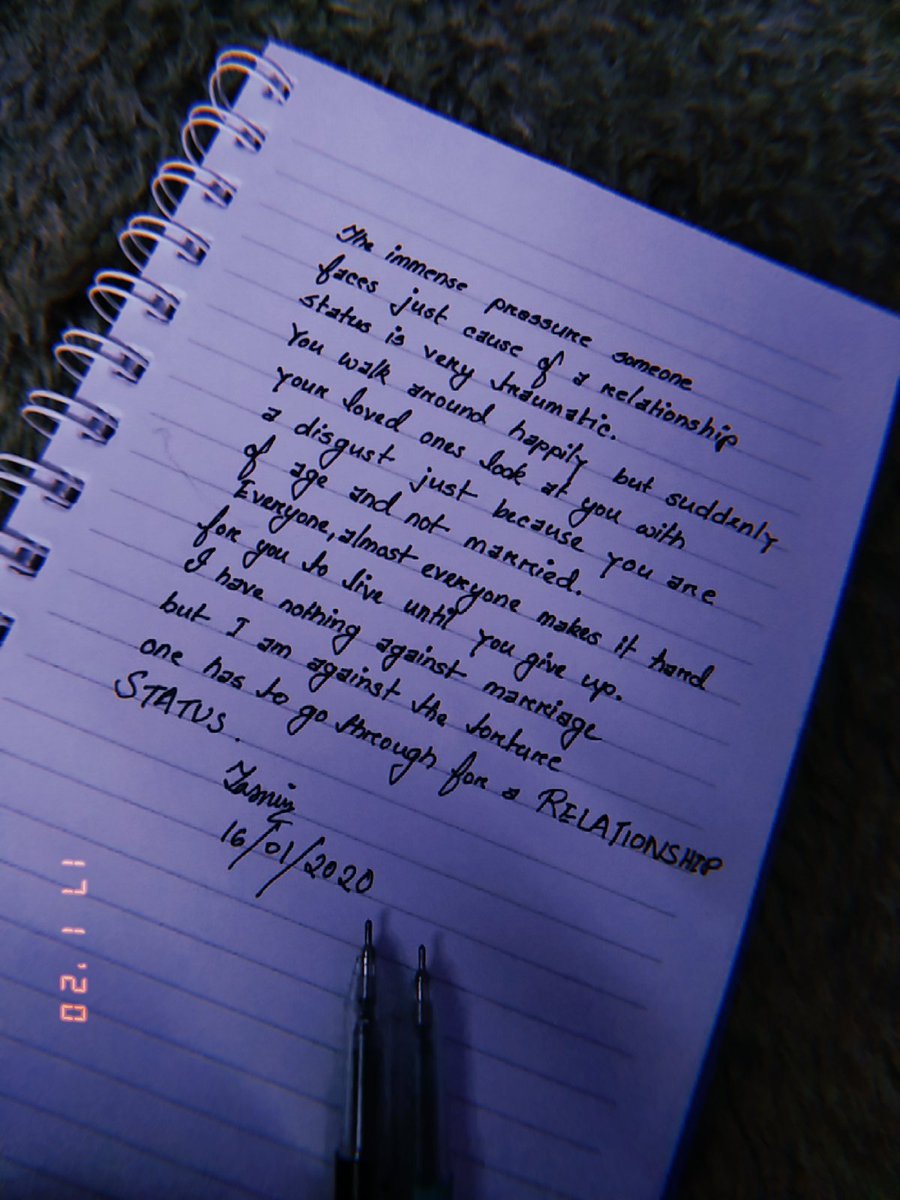 The immense pressure someone
faces just cause of a relationship
status is very traumatic.
You walk around happily but suddenly
your loved ones look at you with
a disgust just because you are
of age and not married.
Everyone, almost everyone makes it hard
for you to live until you give up.
I have nothing against marriage
but I am against the torture
one has to go through for a RELATIONSHIP
STATUS.
Yasmin
16/01/2020
17 1 '20